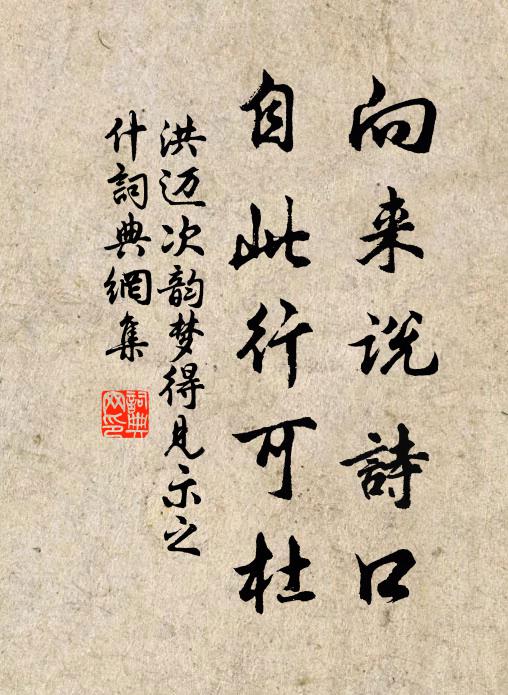 向来说詩口
自此行可杜
洪迈次韵梦得见示之
什詞典網集
詞典
网印